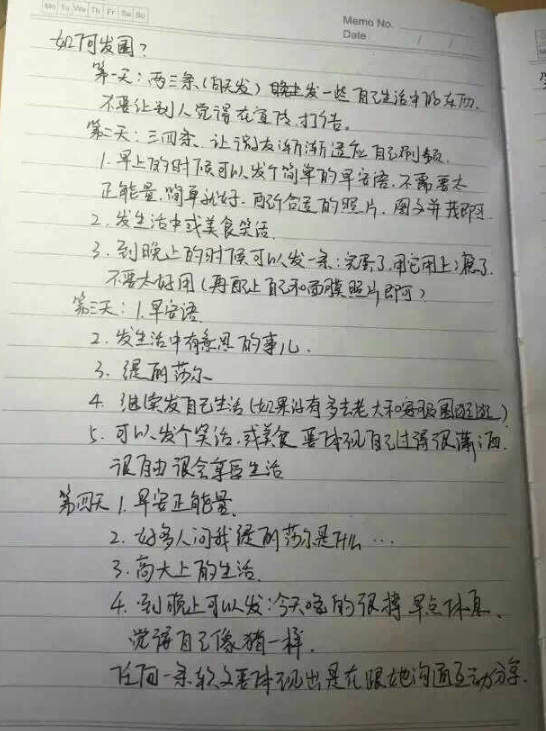 Mo Tu We Th Fr Sa Su
Memo No.
Date / /
如何发圈？
第一天：两三条（白天发）晚上发一些自己生活中的东西，
不要让别人觉得在宣传，打广告。
第二天：三四条，让朋友渐渐适应自己刷频
1. 早上的时候可以发个简单的早安语，不需要太
正能量，简单就好，配个合适的照片，图文并茂即可
2. 发生活中或美食笑话
3. 到晚上的时候可以发一条：完蛋了，用它用上瘾了
不要太好用（再配上自己和面膜照片即可）
第三天：1. 早安语
2. 发生活中有意思的事儿．
3. 缇丽莎尔
4. 继续发自己生活（如果没有多去老大和客服圈逛逛）
5. 可以发个笑话，或美食 要体现自己过得很潇洒
很自由 很会享受生活
第四天 1. 早安正能量，
2. 好多人问我缇丽莎尔是什么…
3. 高大上的生活，
4. 到晚上可以发：今天吃的很撑 早点休息、
觉得自己像猪一样．
任何一条软文要体现出是在跟她沟通互动分享．